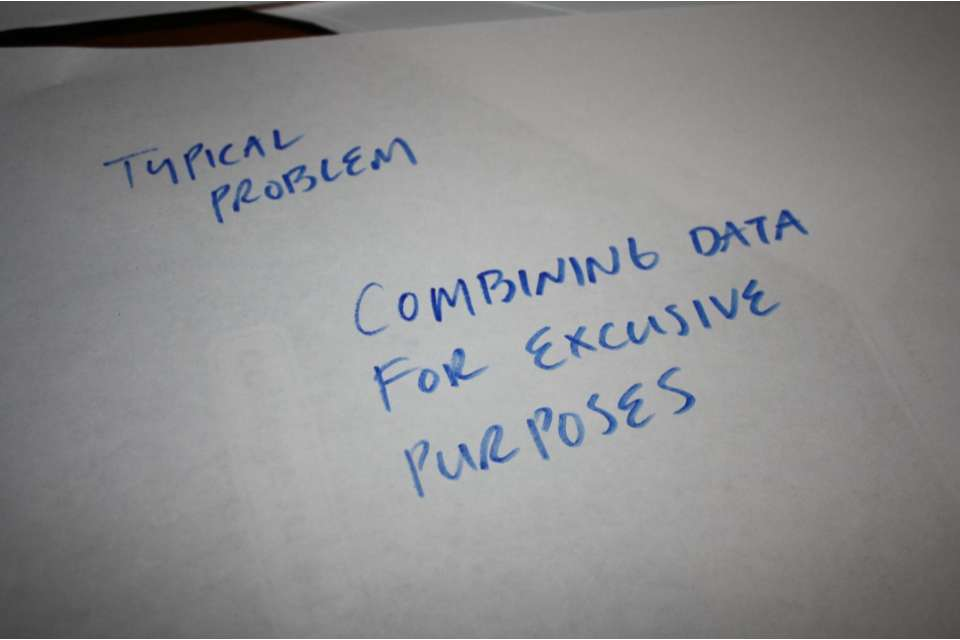 TYPICAL
PROBLEM
COMBINING DATA
FOR EXCUSIVE
PURPOSES